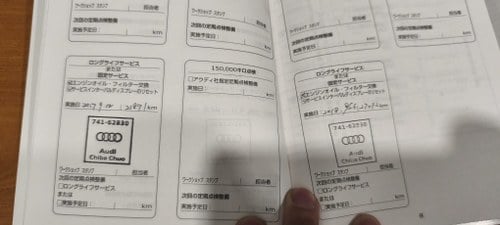 ワークショップ スタンプ 担当者
次回の定期点検整備
実施予定日 km
次回の定期点検整備
実施予定日 km
ワークショップ スタンプ 担当者
次回の定期点検整備
実施予定日 km
ワークショップ スタンプ 担当者
次回の定期点検整備
実施予定日 km
ロングライフサービス
または
固定サービス
エンジンオイル・フィルター交換
サービスインターバルディスプレーのリセット
実施日 2017.9.
km
741-62830
Audi
Chiba Chuo
ワークショップ スタンプ 担当者
次回の定期点検整備
ロングライフサービス
または
実施予定日 km
150,000キロ点検
アウディ社指定定期点検整備
実施日
km
ワークショップ スタンプ 担当者
次回の定期点検整備
実施予定日 km
ロングライフサービス
または
固定サービス
エンジンオイル・フィルター交換
サービスインターバルディスプレーのリセット
実施日 2018.
km
741-62830
Audi
Chiba Chuo
ワークショップ スタンプ 担当者
次回の定期点検整備
ロングライフサービス
または
実施予定日 km